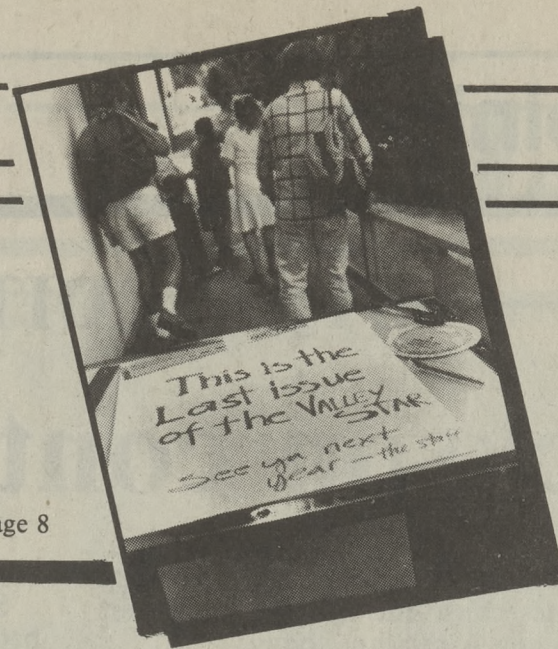 This is the
Last issue
of the VALLEY
STAR
See ya next
year — the staff
uge 8